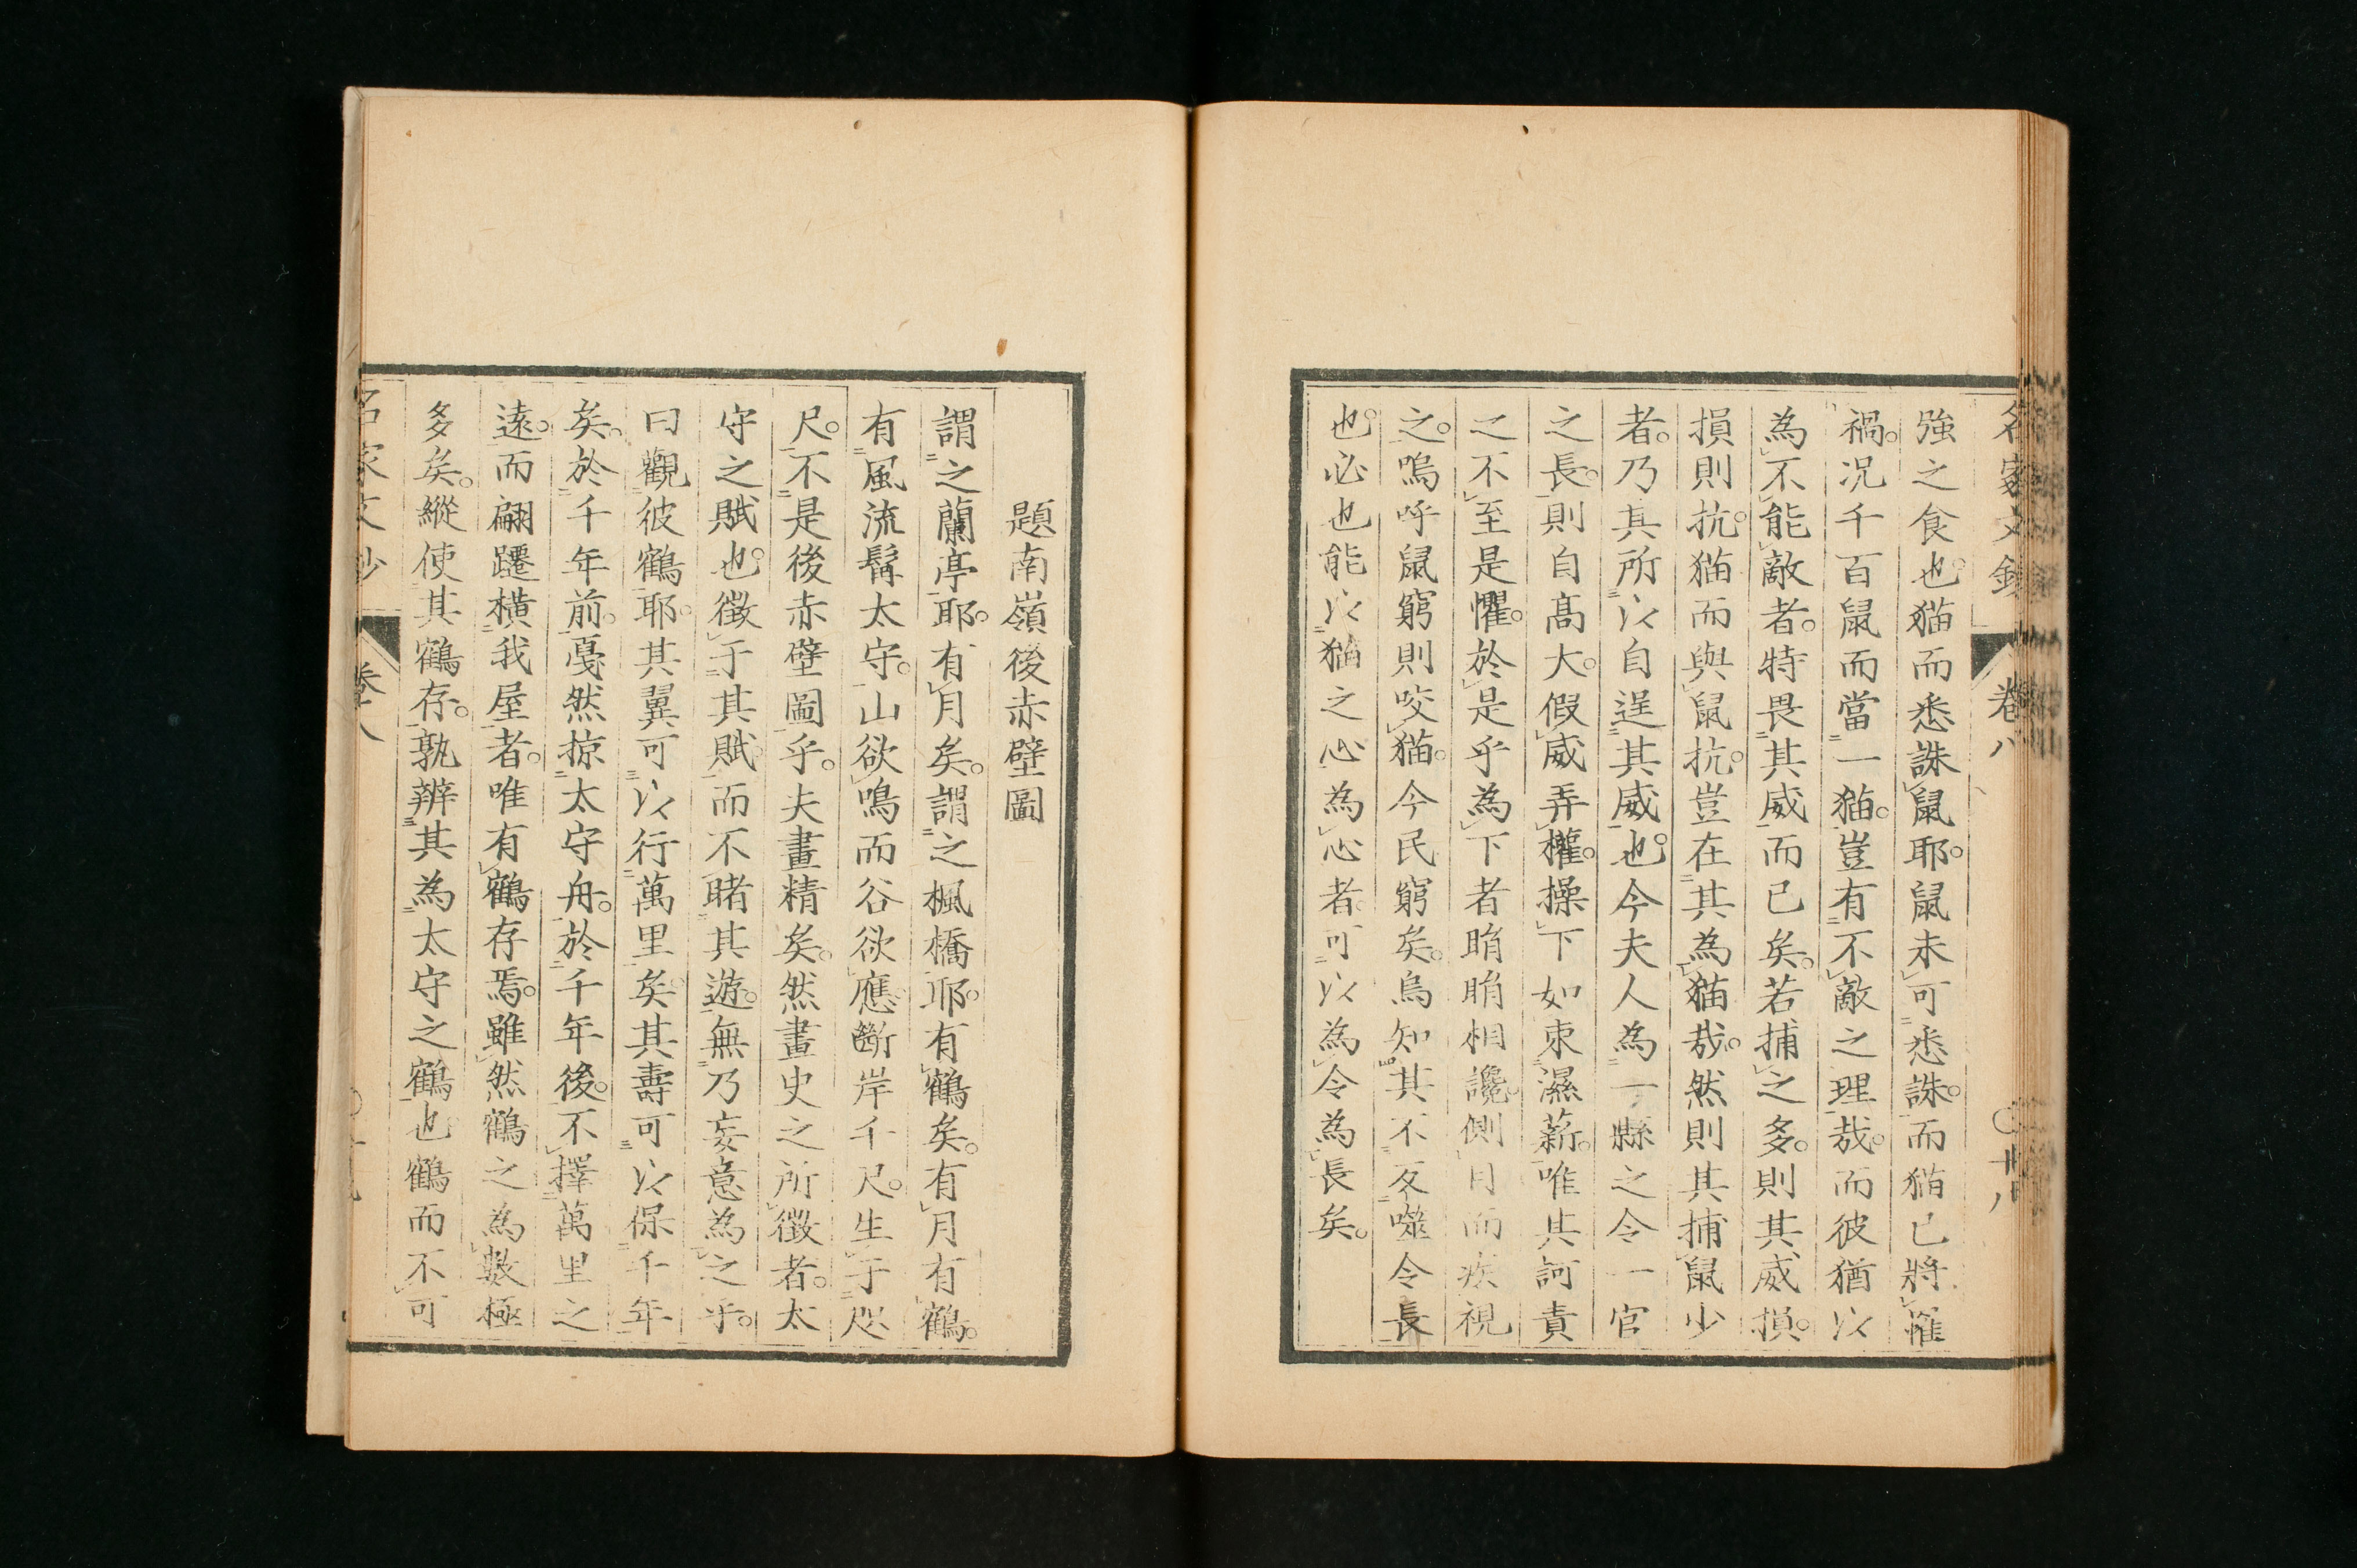 名家文鈔 卷八 〇十八
強之食也。猫而悉誅鼠耶。鼠未可悉誅。而猫已將罹
禍。况千百鼠而當一猫。豈有不敵之理哉。而彼猶以
為不能敵者。特畏其威而已矣。若捕之多。則其威損。
損則抗。猫而與鼠抗。豈在其為猫哉。然則其捕鼠少
者。乃其所以自逞其威也。今夫人為一縣之令一官
之長。則自高大。假威弄權。操下如束濕薪。唯其訶責
之不至是懼。於是乎為下者睊睊相讒。側目而疾視
之。嗚呼鼠窮則咬猫。今民窮矣。烏知其不反噬令長
也。必也能以猫之心為心者。可以為令為長矣。
題南嶺後赤壁圖
謂之蘭亭耶。有月矣。謂之楓橋耶。有鶴矣。有月有鶴。
有風流髯太守。山欲鳴而谷欲應。斷岸千尺。生于咫
尺。不是後赤壁圖乎。夫畫精矣。然畫史之所徵者。太
守之賦也。徵于其賦。而不睹其遊。無乃妄意為之乎。
曰觀彼鶴耶。其翼可以行萬里矣。其壽可以保千年
矣。於千年前。戞然掠太守舟。於千年後。不擇萬里之
遠。而翩躚橫我屋者。唯有鶴存焉。雖然鶴之為數極
多矣。縱使其鶴存。孰辨其為太守之鶴也。鶴而不可
名家文鈔 卷八